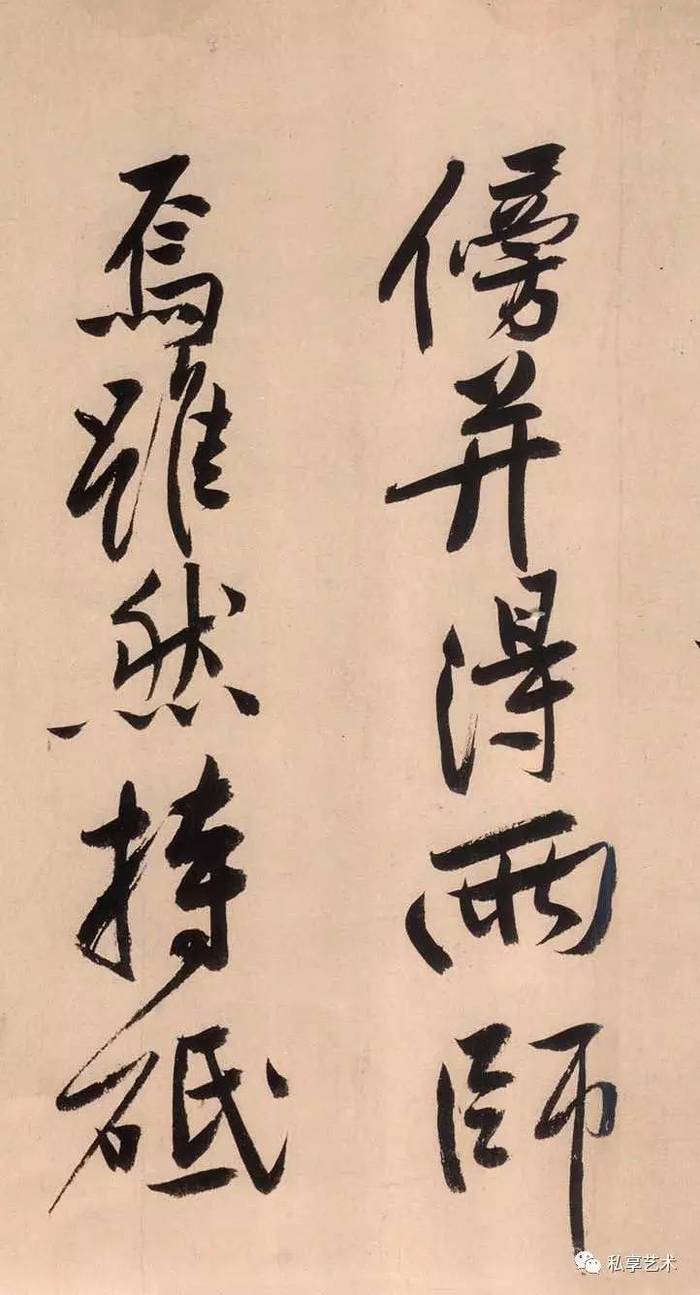 傍并得兩師
焉雖然持砥
私享艺术